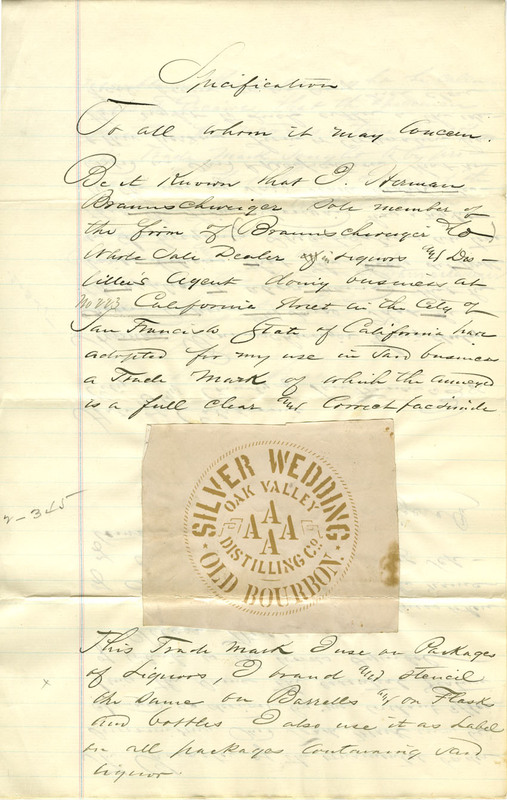 Specification
To all whom it may Concern.
Be it Known that I. Herman
Braunschweiger Sole member of
the firm of (Braunschweiger & Co)
Whole Sale Dealer in Liquors and Dis-
tiller's Agent doing business at
No 223 California Street in the City of
San Francisco State of California have
adopted for my use in said business
a Trade Mark of which the annexed
is a full clear and Correct facsimile
SILVER WEDDING
OAK VALLEY
A
A A A
A
DISTILLING Co.
OLD BOURBON.
2-345
This Trade Mark I use on Packages
of Liquors, I brand and stencil
the same on Barrells & on Flasks
and bottles I also use it as Label
on all packages Containing said
liquor.
x